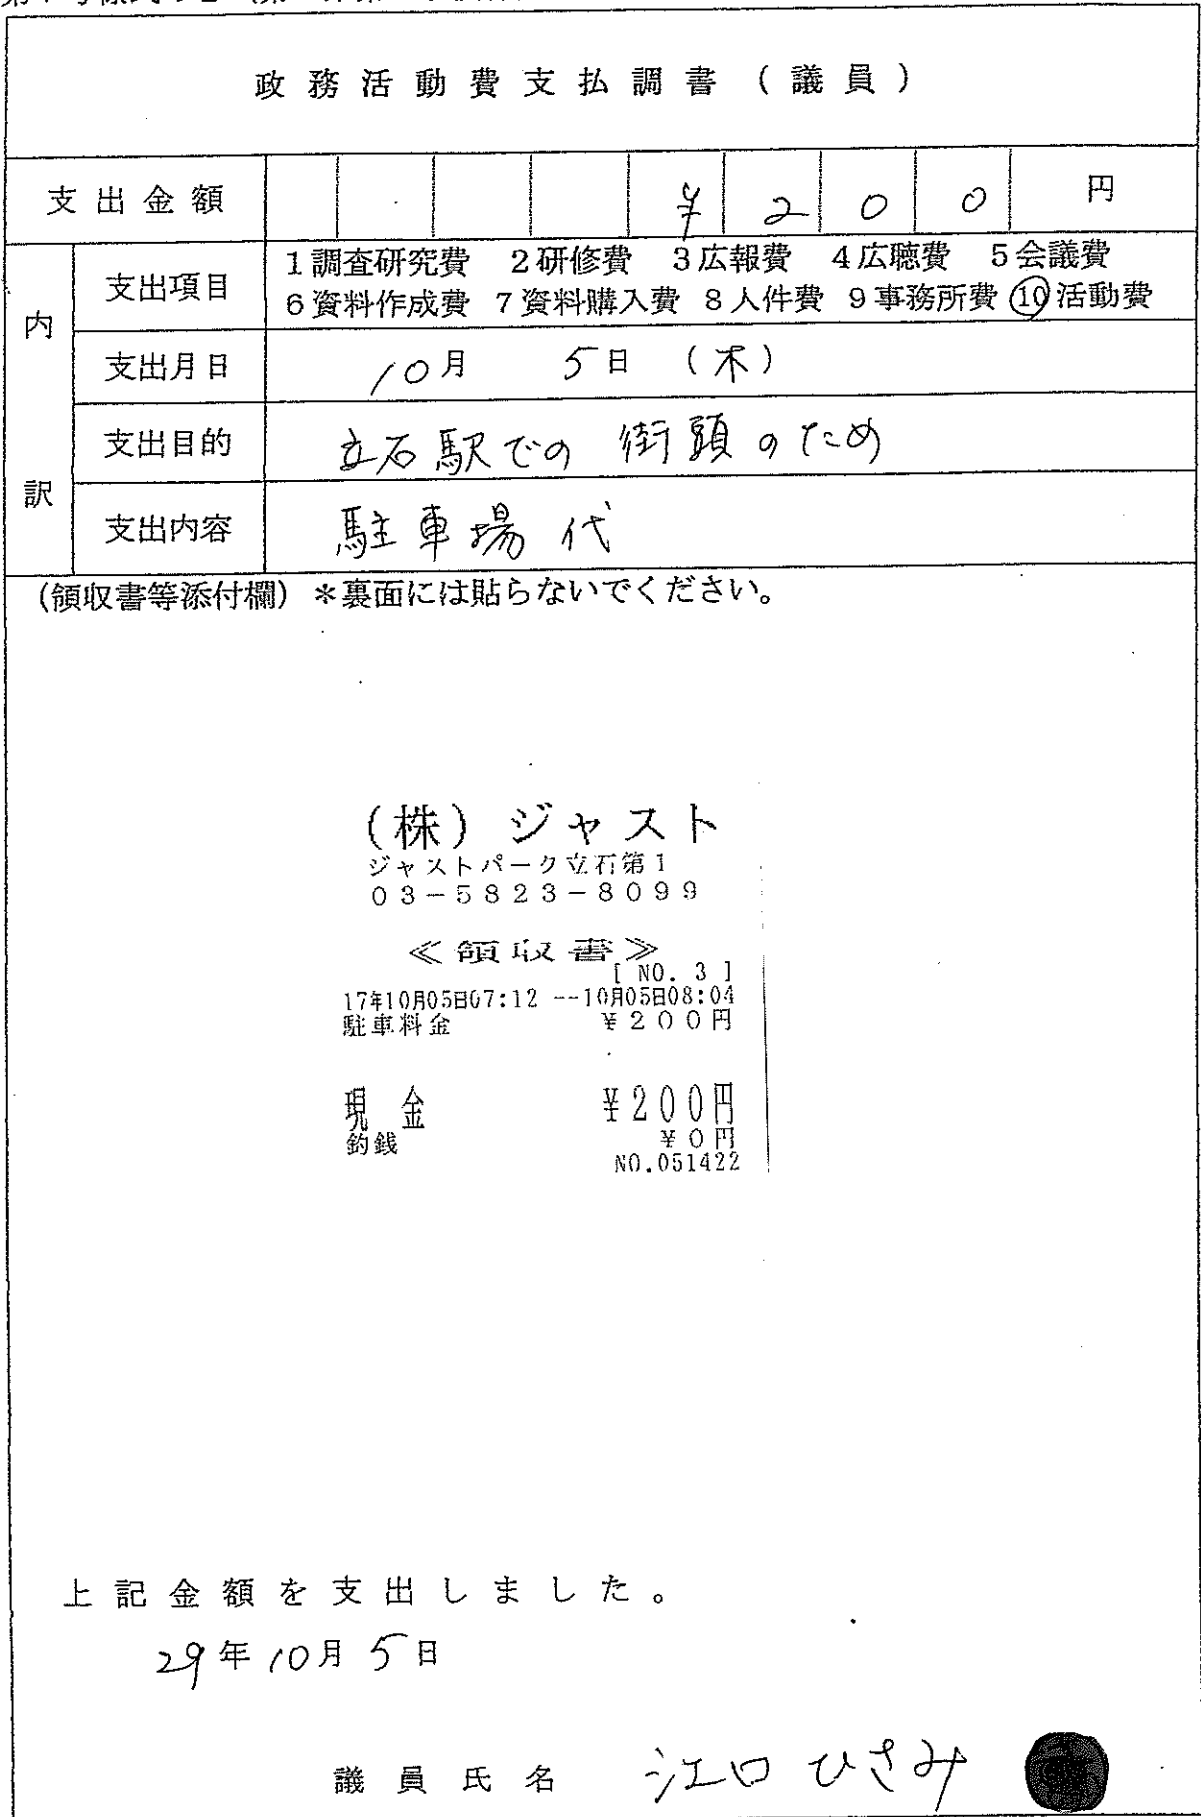 政務活動費支払調書(議員)
支出金額 ¥200円
内訳
支出項目 1調査研究費 2研修費 3広報費 4広聴費 5会議費
6資料作成費 7資料購入費 8人件費 9事務所費 ⑩活動費
支出月日 10月 5日 (木)
支出目的 立石駅での街頭のため
支出内容 駐車場代
(領収書等添付欄)*裏面には貼らないでください。
(株)ジャスト
ジャストパーク立石第1
03-5823-8099
≪領収書≫
[NO. 3]
17年10月05日07:12 --10月05日08:04
駐車料金 ¥200円
現金 ¥200円
釣銭 ¥0円
NO.051422
上記金額を支出しました。
29年10月5日
議員氏名 江口ひさみ